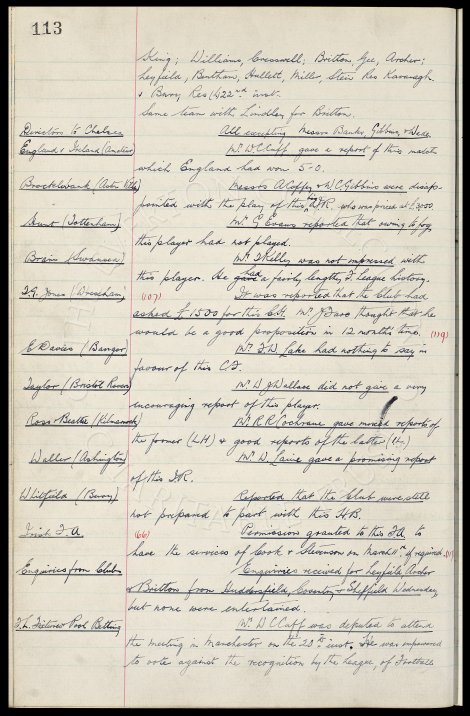 113
King; Williams, Cresswell; Britton, Gee, Archer;
Leyfield, Bentham, Hullett, Miller, Stein Res Kavanagh.
v Bury, Res (A) 22nd inst.
Same team with Lindley for Britton.
Directors to Chelsea All excepting Messrs Banks, Gibbins, &
England v Ireland (Amateur) Mr. W.C. Cuff gave a report of this match
which England had won 5-0.
Brocklebank (Aston Villa) Messrs A Coffey & W.C. Gibbins were disap-
pointed with the play of this I/R. who was priced at £3000
Hunt (Tottenham) Mr. G Evans reported that owing to fog
this player had not played.
Brain (Swansea) Mr. T Kelly was not impressed with
this player. He had a fairly lengthy F. League history.
T.G. Jones (Wrexham) (107) It was reported that the Club had
asked £1500 for this C.H. Mr. thought that he
would be a good proposition in 12 months time. (119)
E Davies (Bangor) Mr. F.W. Lake had nothing to say in
favour of this C.F.
Taylor (Bristol Rovers) Mr. D Wallace did not give a very
encouraging report of this player.
Ross-Beattie (Kilmarnock) Mr. R.R. Cochrane gave mixed reports of
the former (L.H.) & good reports of the latter
Waller (Ashington) Mr. W. Laine gave a promising report
of this I.R.
Whitfield (Bury) Reported that the Club were still
not prepared to part with this H.B.
Irish F.A. (66) Permission granted to this F.A. to
have the services of Cook & Stevenson on March if required.
Enquiries from Clubs Enquiries received for Leyfield, Archer
& Britton from Huddersfield, Coventry & Sheffield Wednesday
but none were entertained.
F.L. Fixtures Pool Betting Mr. W C Cuff was deputed to attend
the meeting in Manchester on the 20th inst. He was empowered
to vote against the recognition by the League, of Football